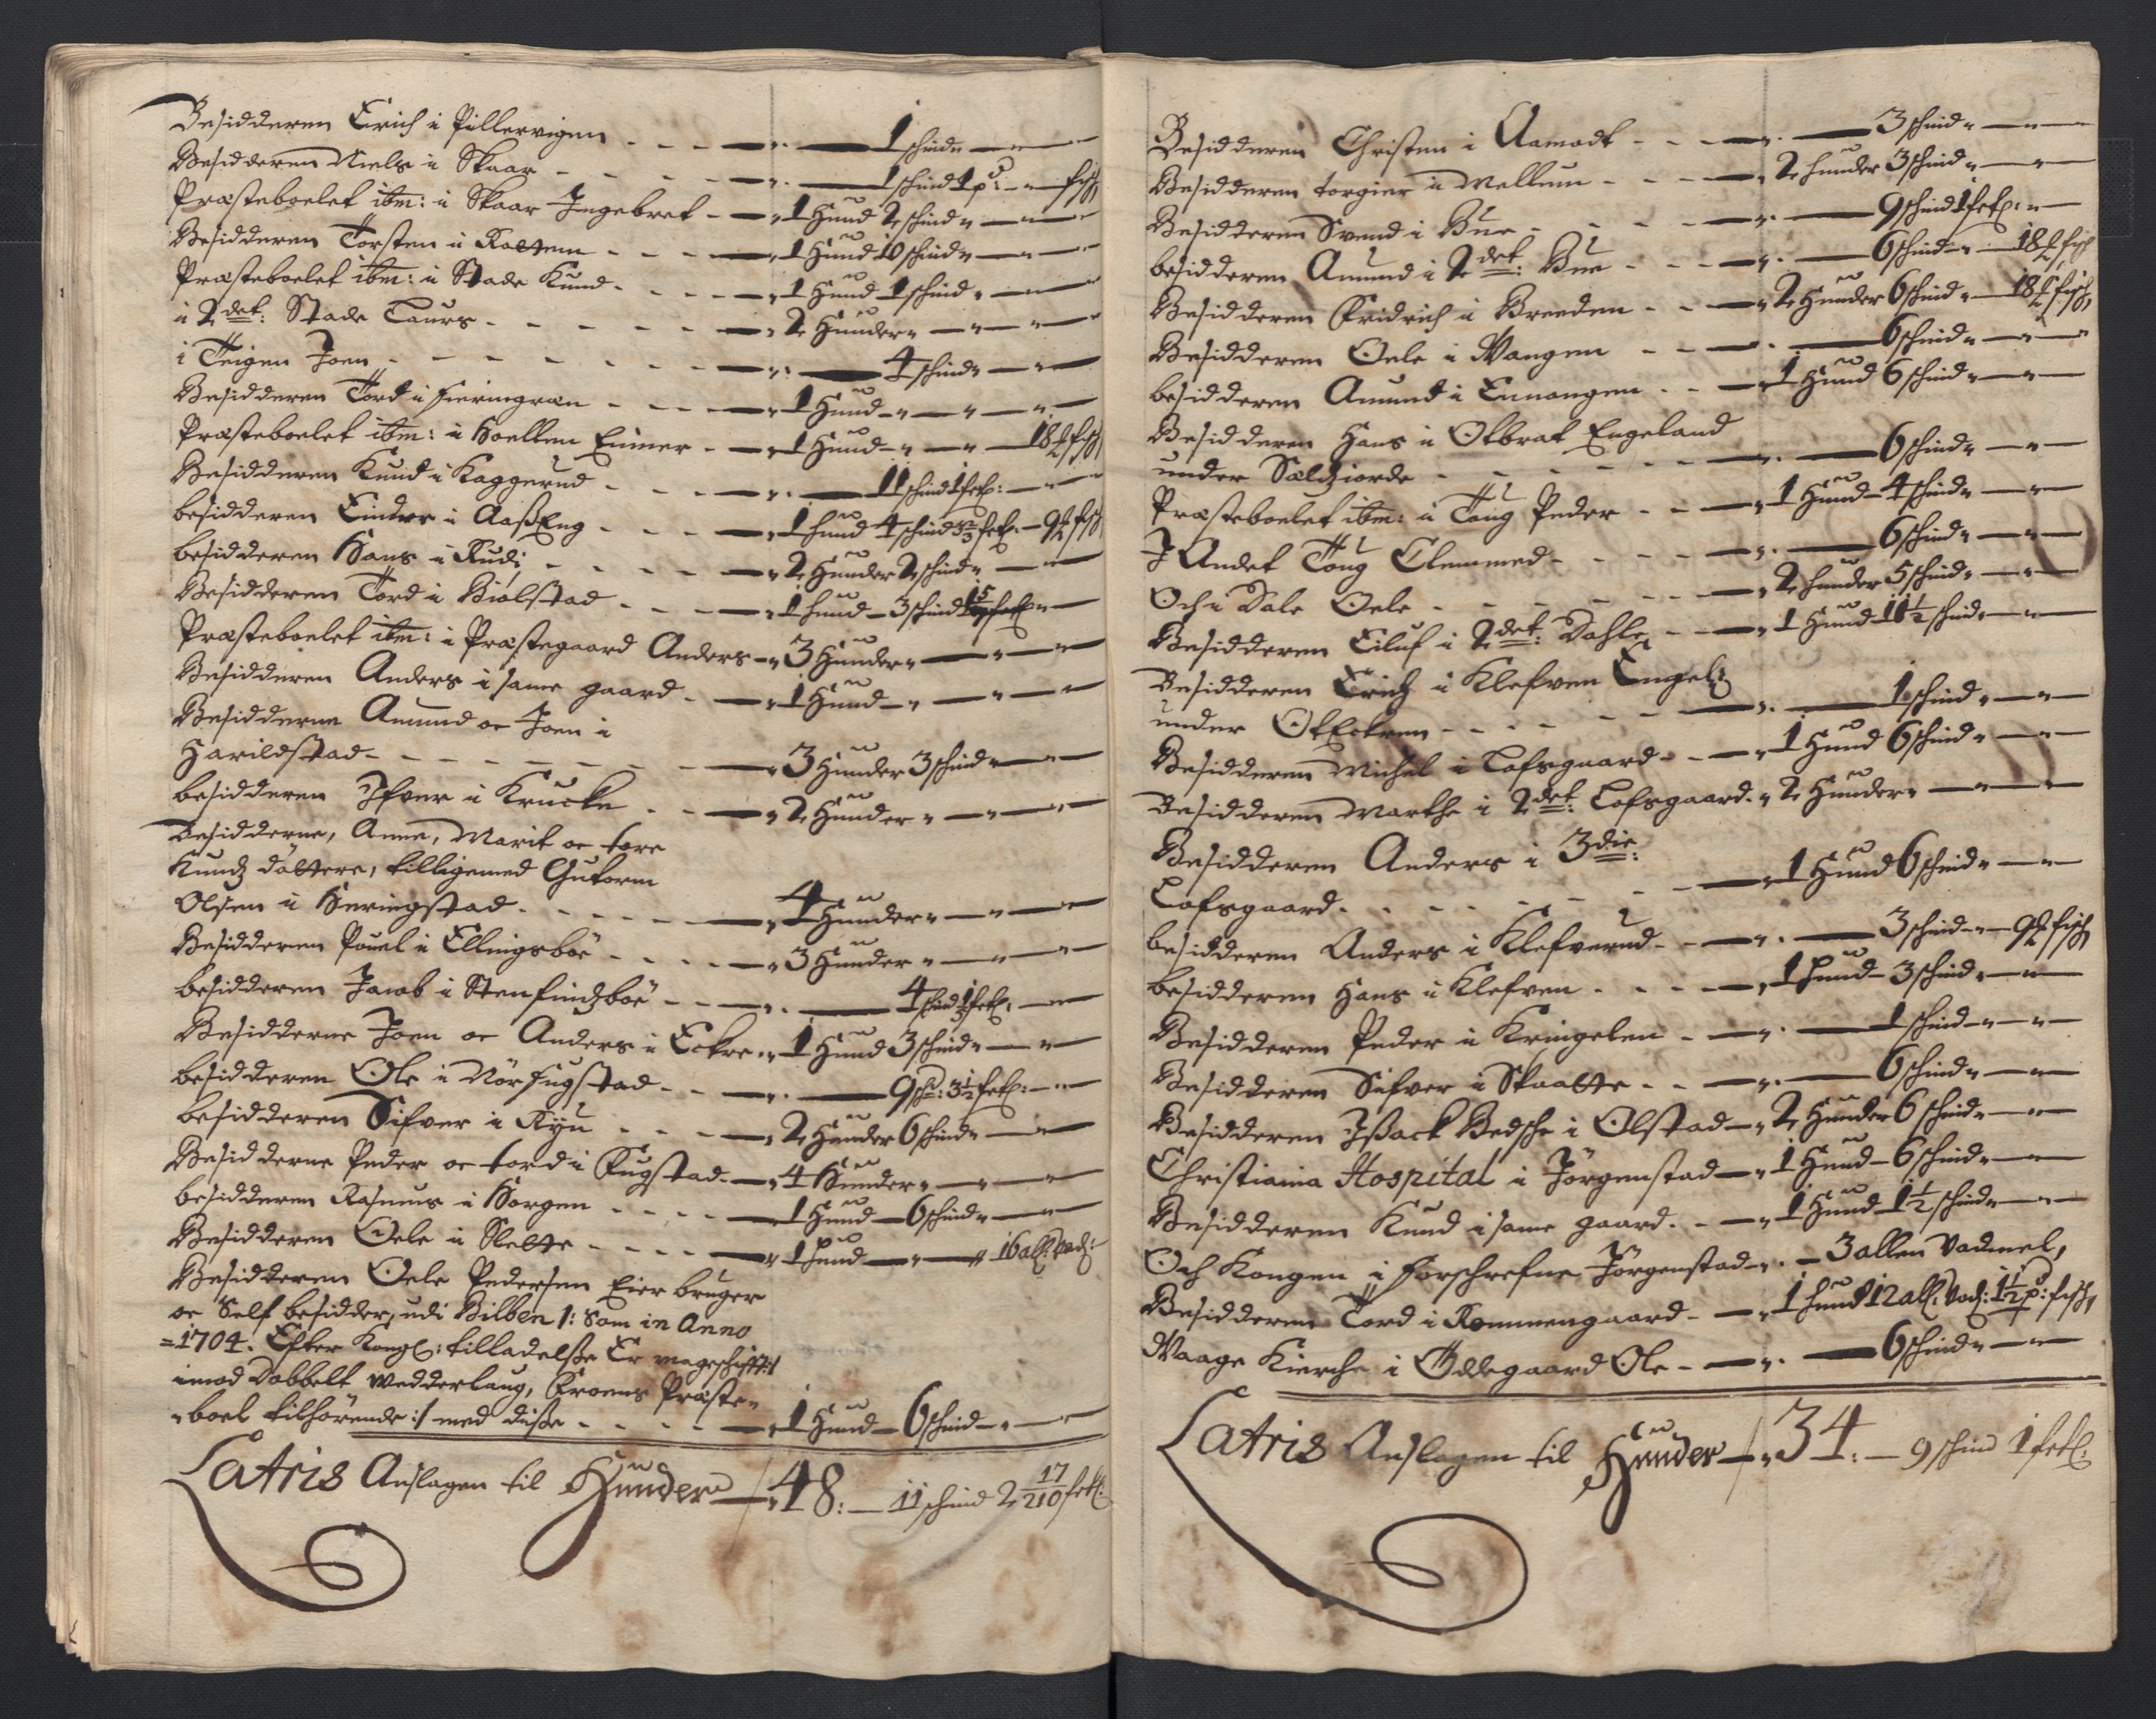 Besidderen Erich i Pillervigen - - - — „ — 1 schind „ — „ —
Besidderen Niels i Skaar - - - - — „ — 1 schind 1 p: „ — fisch
Præsteboelet ibm: i Skaar Ingebret - — „ 1 Hund 2 schind „ — „ —
Besidderen Torsten i Kolttem - - - — „ 1 Hund 10 schind „ — „ —
Præsteboelet ibm: i Stade Knud - - - — „ 1 Hund 1 schind „ — „ —
i 2det: Stade Laurs - - - - - — „ 2 Hunder „ — „ — „ —
i Teigen Joen - - - - - - — „ — 4 schind „ — „ —
Besidderen Tord i Fieringran - - - — „ 1 Hund „ — „ — „
Præsteboelet ibm: i Hoellem Einner - — „ 1 Hund „ — „ — 18 fisch
Besidderen Knud i Kaggerud - - - — „ — 11 schind 1 fetl: — „ —
besidderen Einder i AaßEng - - - — „ 1 hund 4 schind fetl: — 9 fisch
besidderen Hans i Rudj - - - - — „ 2 Hunder 2 schind „ — „ —
Besidderen Tord i Biolstad - - - — „ 1 hund — 3 schind
Præsteboelet ibm: i Præstegaard Anders — „ 3 Hunder „ — „ —
Besidderen Anders i same gaard - - — „ 1 Hund „ — „ — „ —
Besidderne Amund oc Joen i
Harildstad - - - - - - - — „ 3 Hunder 3 schind „ — „ —
besidderen Ifver i Krucke - - — „ 2 Hunder „ — „ — „ —
Besidderne, Anne, Marit oc tore
Knudz döttere, tilligemed Gutorm
Olsen i Heringstad - - - - - — „ 4 Hunder „ — „ —
Besidderen Pouel i Ellingsböe - - - — „ 3 Hunder „ — „ —
besidderen Jacob i Stenfindzböe - - — „ — 4 schind fetl: — „ —
Besidderne Joen oc Anders i Eckre „ 1 Hund 3 schind „ — „ —
besidderen Ole i Nörfugstad - - — „ — 9 sch: 3½ fetl: — „ —
besidderen Sifver i Ryu - - - — „ 2 Hunder 6 schind „ — „ —
Besidderne Peder oc tord i Fugstad - — „ 4 Hunder „ — „ —
besidderen Rasmus i Horgen - - - — 1 Hund — 6 schind „ — „ —
Besidderen Oele i Slette - - - — „ 1 hund — „ — „ 16 all: vad:
Besidderen Oele Pedersen Eier bruger
oc Self besidder, udi Bilben /: Som in Anno
=1704. Efter Kongl: tilladelße Er mageschifft:/
imod Dobbelt wedderlaug, Froens Præste=
=boel tilhörende :/ med diße - - - - — „ 1 Hund — 6 schind — „ —
Latris Anslagen til Hunder — „ 48: — 11 schind 2 17/210 fetl:
Besidderen Christen i Aamodt - - - — „ — 3 schind „ — „ —
Besidderen torgier i Mellum - - - — „ 2 hunder 3 schind „ — „ —
Besidderen Svend i Bue - - - - — „ — 9 schind 1 fetl: „ —
besidderen Amund i 2det: Bue - - - — „ — 6 schind „ — 18 fisch
Besidderen Fridrich i Breeden - - — „ 2 Hunder 6 schind „ — 18 fisch
Besidderen Oele i Wangen - - — „ — 6 schind „ — „ —
besidderen Amund i Ennangen - - — „ 1 Hund 6 schind „ — „ —
Besidderen Hans i Otbrat Engeland
under Sælzjorde - - - - - - — „ — 6 schind „ — „ —
Præsteboelet ibm: i Toug Peder - - — „ 1 Hund — 4 schind „ — „ —
J Andet Toug Clemmed - - - - — „ — 6 schind „ — „ —
Och i Dale Oele - - - - - - — „ 2 hunder 5 schind „ — „ —
Besidderen Eiluf i 2det: Dahle - — „ 1 Hund 11½ schind „ — „ —
Besidderen Erich i Klefven Engel:
under OtEckren - - - - - - — „ — 1 schind „ — „ —
Besidderen Michel i Lofsgaard - - — „ 1 Hund 6 schind „ — „ —
Besidderen Marthe i 2det: Lofsgaard - „ 2 Hunder „ — „ —
Besidderen Anders i 3die:
Lofsgaard - - - - - - — „ 1 Hund 6 schind „ — „ —
besidderen Anders i Klefverud - - — „ — 3 schind „ — 9 fisch
besidderen Hans i Klefven - - - — „ 1 hund — 3 schind „ — „ —
Besidderen Peder i Kringelen - — „ — 1 schind „ — „ —
Besidderen Sifver i Skaatte - - — „ — 6 schind „ — „ —
Besidderen Ißack Bedsche i Olstad — „ 2 Hunder 6 schind „ — „ —
Christiania Hospital i Jörgenstad — „ 1 Hund — 6 schind „ — „ —
Besidderen Knud i same gaard - - — „ 1 Hund — 1½ schind „ — „ —
Och Kongen i forschrefne Jörgenstad „ — 3 allen Vadmel,
Besidderen Tord i Rommengaard - — „ 1 hund 12 all: Vad: 1½ p: fisch
Waage Kierche i Ödegaard Ole - — „ — 6 schind „ — „ —
Latris Anslagen til Hunder — „ 34: — 9 schind 1 fetl: